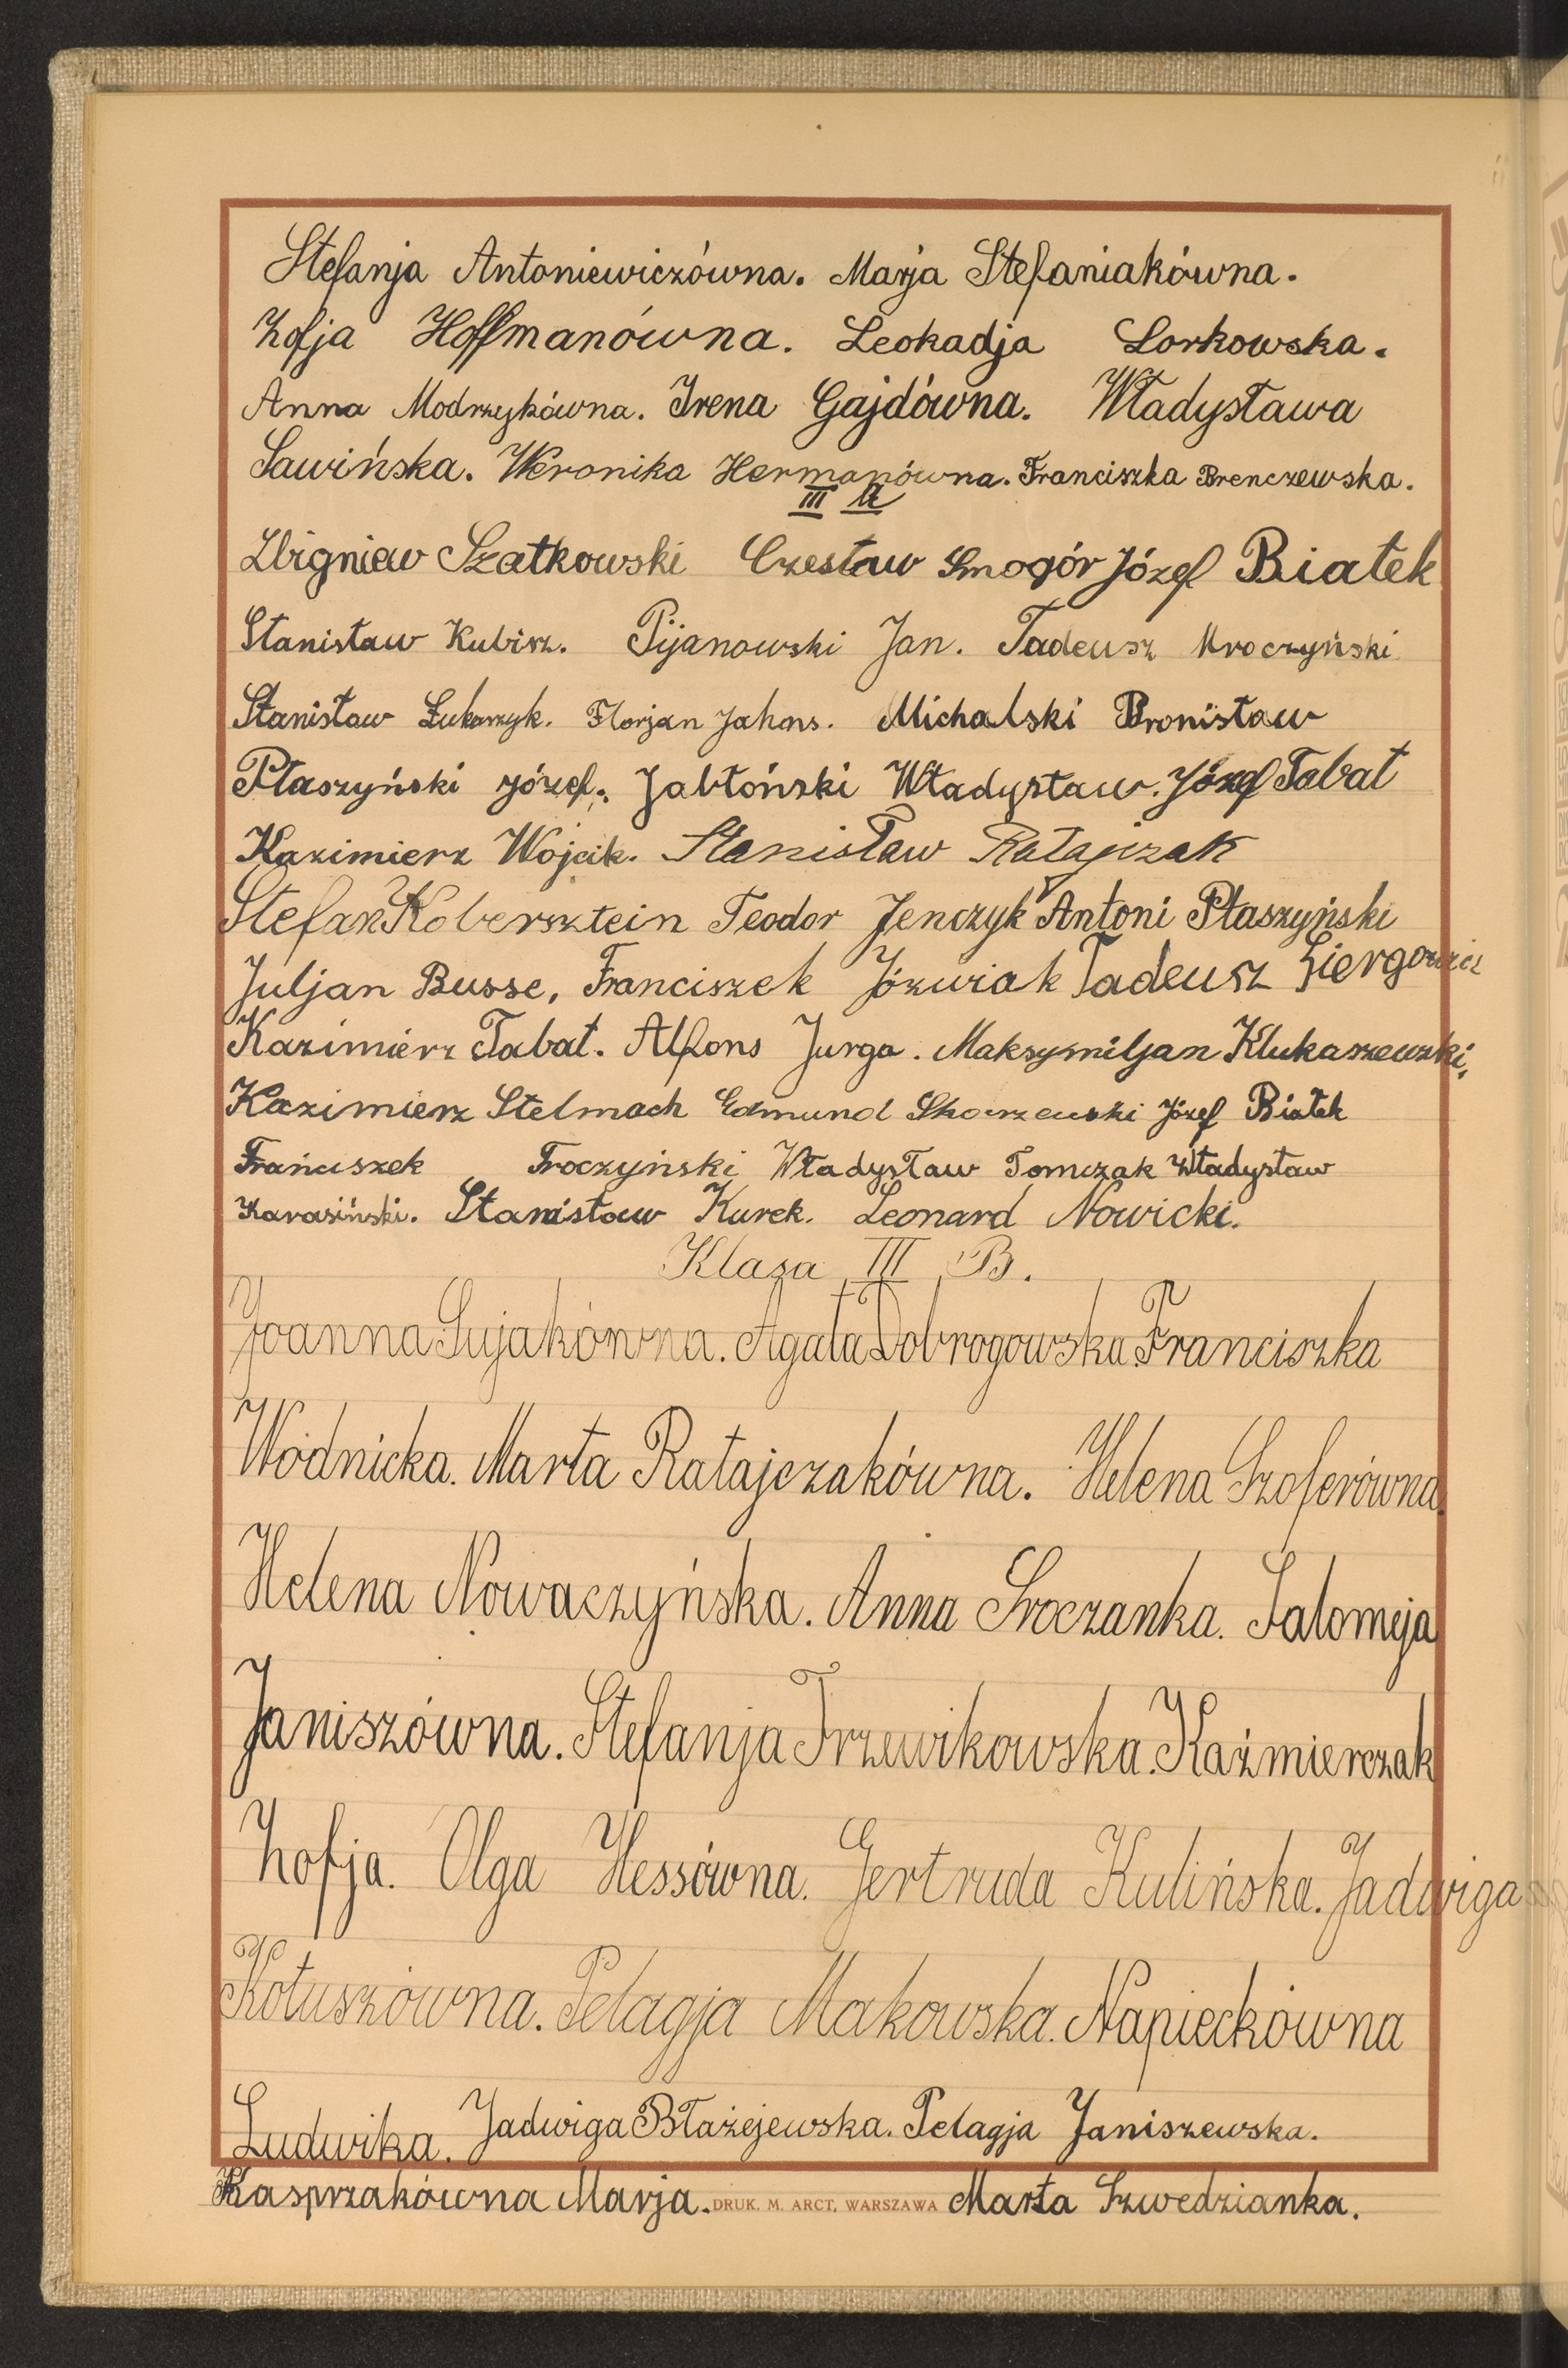 Stefanja Antoniewiczówna. Marja Stefaniakówna.
Zofja Hoffmanówna. Leokadja Lorkowska.
Anna Modrzykówna. Irena Gajdówna. Władysława
Sawińska. Weronika Hermanówna. Franciszka Brenczewska.
III a
Zbigniew Szatkowski Czesław Smogór Józef Białek
Stanisław Kubisz. Pijanowski Jan. Tadeusz Mroczyński
Stanisław Łukaszyk. Florjan Jahns. Michalski Bronisław
Płaszyński Józef. Jabłoński Władysław. Józef Tabat
Kazimierz Wojcik. Stanisław Ratajczak
Stefan Kobersztein Teodor Jenczyk Antoni Ptaszyński
Juljan Busse, Franciszek Józwiak Tadeusz
Kazimierz Tabat. Alfons Jurga. Maksymiljan Klukaszewski,
Kazimierz Stelmach Edmund Skorzewski Józef Białek
Franciszek Troczyński Władysław Tomczak Władysław
Karasiński. Stanisław Kurek. Leonard Nowicki.
Klasa III B.
Joanna Sujakówna. Agata Dobrogowska. Franciszka
Wódnicka. Marta Ratajczakówna. Helena Szoferówna.
Helena Nowaczyńska. Anna Sroczanka. Salomeja
Janiszówna. Stefanja Trzewikowska. Kaźmierczak
Zofja. Olga Hessówna. Gertruda Kulińska. Jadwiga
Kotuszówna. Pelagja Makowska. Napieckówna
Ludwika. Jadwiga Błażejewska. Pelagja Janiszewska.
Kasprzakówna Marja. DRUK. M. ARCT, WARSZAWA Marta Szwedzianka.